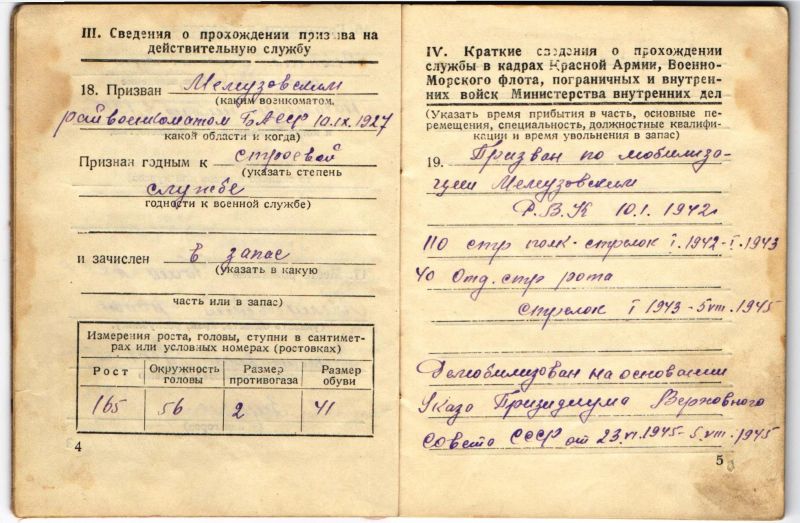 III. Сведения о прохождении призыва на
действительную службу
18. Призван Мелеузовским
(каким военкоматом,
райвоенкоматом БАССР 10.IX.1927
какой области и когда)
Признан годным к строевой
(указать степень
службе
годности к военной службе)
и зачислен в запас
(указать в какую
часть или в запас)
Измерения роста, головы, ступни в сантимет-
рах или условных номерах (ростовках)
Рост Окружность головы Размер противогаза Размер обуви
165 56 2 41
4
IV. Краткие сведения о прохождении
службы в кадрах Красной Армии, Военно-
Морского флота, пограничных и внутрен-
них войск Министерства внутренних дел
(Указать время прибытия в часть, основные пе-
ремещения, специальность, должностные квалифи-
кации и время увольнения в запас)
19. Призван по мобилиза-
ции Мелеузовским
Р.В.К 10.I. 1942г
110 стр полк-стрелок I.1942-I.1943
40 Отд. стр рота
стрелок I 1943-5VIII.1945
Демобилизован на основании
Указа Призидиума Верховного
Совета СССР от 23.VI.1945-5.VIII.1945
5